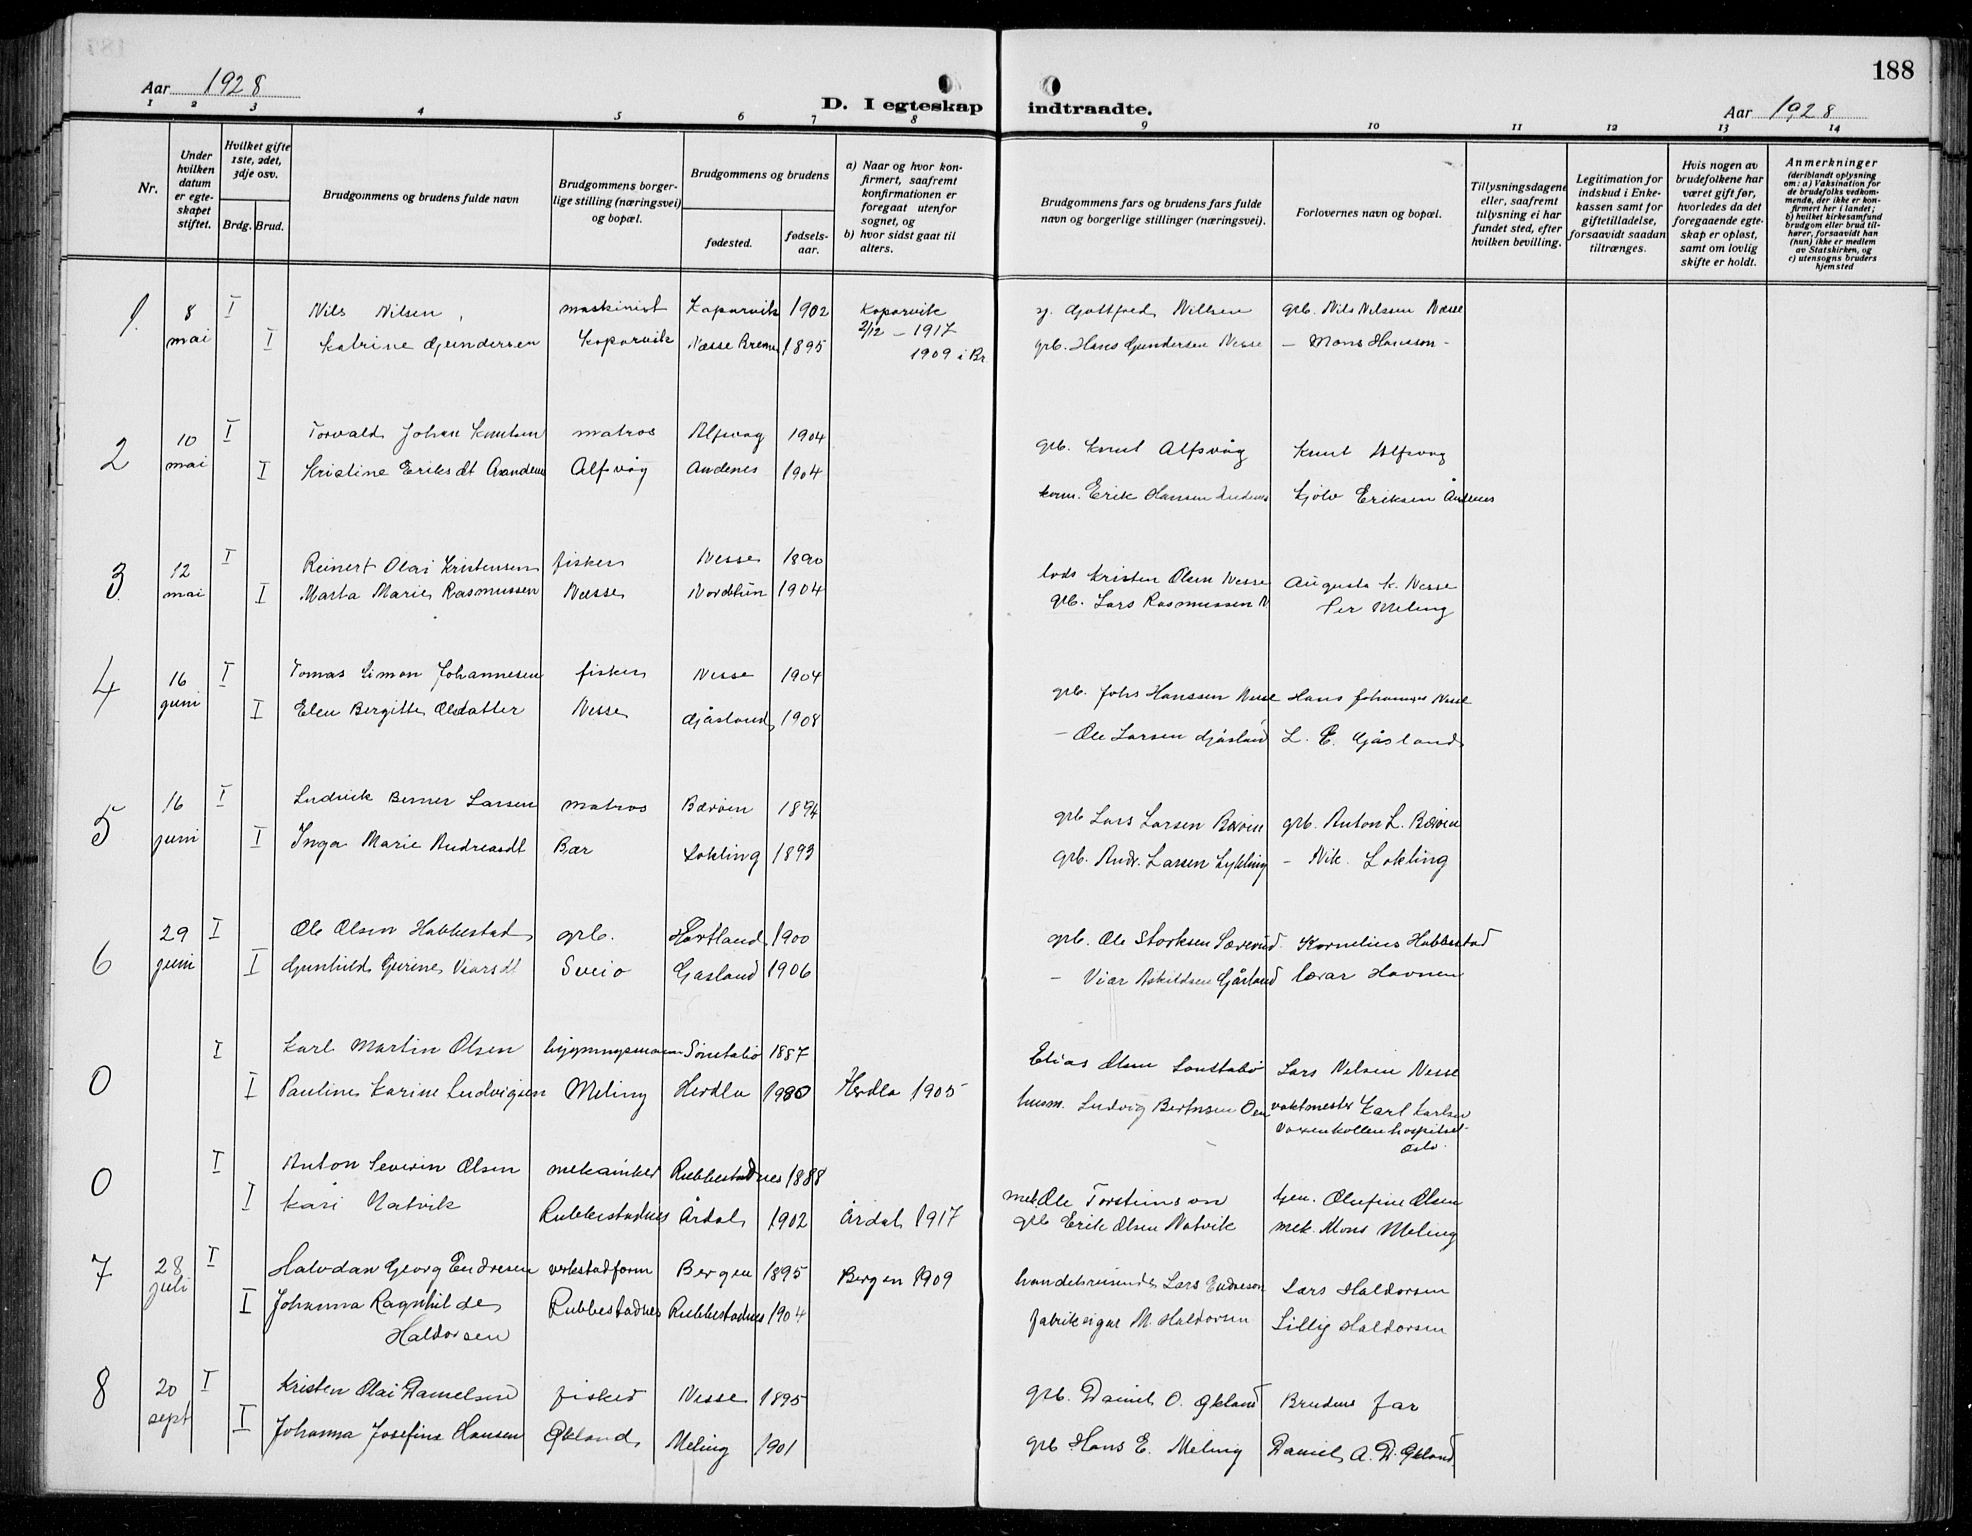 188
Aar 1928
D. I egteskap indtraadte.
Aar 1928
1 2 3 4 5 6 7 8 9 10 11 12 13 14
Nr.
Under hvilken datum er egteskapet stiftet.
Hvilket gifte 1ste, 2det, 3dje osv.
Brdg. Brud.
Brudgommens og brudens fulde navn
Brudgommens borgerlige stilling (næringsvei) og bopæl.
Brudgommens og brudens
fødested. fødselsaar.
a) Naar og hvor konfirmert, saafremt konfirmationen er foregaat utenfor sognet, og
b) hvor sidst gaat til alters.
Brudgommens fars og brudens fars fulde navn og borgerlige stillinger (næringsvei).
Forlovernes navn og bopæl.
Tillysningsdagene eller, saafremt tillysning ei har fundet sted, efter hvilken bevilling.
Legitimation for indskud i Enkekassen samt for giftetilladelse, forsaavidt saadan tiltrænges.
Hvis nogen av brudefolkene har været gift før, hvorledes da det foregaaende egteskap er opløst, samt om lovlig skifte er holdt.
Anmerkninger (deriblandt oplysning om: a) Vaksination for de brudefolks vedkommende, der ikke er konfirmert her i landet; b) hvilket kirkesamfund brudgom eller brud tilhører, forsaavidt han (hun) ikke er medlem av Statskirken, og c) utensogns bruders hjemsted
1. 8 I Nils Nilsen maskinist Koparvik 1902 Koparvik Gottfred Nillsen grb. Nils Nilssen Nesse
mai I Katrine Gundersen Koparvik Nesse Bremn 1895 2/12 - 1917 grb. Hans Gundersen Nesse - Mons Hansson -
1909 i Br.
2 10 I Torvald Johan Knutsen matros Alfsvag 1904 grb. Knut Alfsvåg Knut Alfsvag
mai I Kristine Eriksdt Aandenes Alfsvåg Andenes 1904 Erik Hansen Andenes Kjolv Eriksen Åndenes
3 12 I Reinert Olai Kristensen fisker Nesse 1890 lods Kristen Olsen Nesse Augusta K. Nesse
mai I Marta Marie Rasmussen Nesse Nordhun 1904 grb. Lars Rasmussen N Per Meling
4 16 I Tomas Simon Johannesen fisker Nesse 1904 grb. Johs Hanssen Nesse Hans Johannes Nesse
juni I Elen Bergitte Olsdatter Nesse Gjåsland 1908 - Ole Larsen Gjåsland L. E. Gjåsland
5 16 I Ludvik Berner Larsen matros Bærøen 1894 grb Lars Larsen Bærøen grb. Anton L. Bærøen
juni I Inga Marie Andreasdt Bær Lokling 1893 grb. Andr. Larsen Lykling - Nik. Lokling
6 29 I Ole Olsen Habbestad grb. Hortland 1900 grb. Ole Storksen Kornelius Habbestad
juni I Gunhild Gurine Viarsdt Sveio Gasland 1906 - Viar Askildsen Gåsland lærar Hovnen
0 I Karl Martin Olsen bygningsmann Sønstabø 1887 Elias Olsen Sonstabø Lars Nelsen Nesse
I Pauline Karine Ludvigsen Meling Herdla 1980 Herdla 1905 husm. Ludvig Berntsen Oen vaktmester Karl Karlsen
Voxenkollen hospital
Oslo.
0 I Anton Severin Olsen mekaniker Rubbestadnes 1888 mek Ole Torsteinson Olufine Olsen
I Kari Natvik Rubbestadnes Årdal 1902 Årdal 1917 grb Erik Olsen Natvik mek. Mons Meling
7 28 I Halvdan Georg Endresen verkstadform Bergen 1895 Bergen 1909 handelsreisende Lars Endreson Lars Haldorsen
juli I Johanna Ragnhilde Rubbestadnes Rubbestadnes 1904 fabrikeigar M. Haldorsen Lillig Haldorsen
Haldorsen
8 20 I Kristen Olai Danielsen fisker Nesse 1895 grb. Daniel O. Økland Brudens far
sept I Johanna Josefine Hansen Økland Meling 1901 grb Hans E. Meling Daniel A. D. Økland